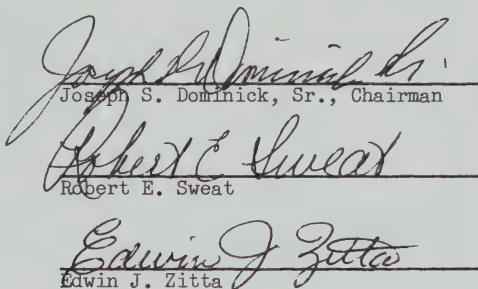 Joseph S. Dominick, Sr.
Joseph S. Dominick, Sr., Chairman
Robert E. Sweat
Robert E. Sweat
Edwin J Zitta
Edwin J. Zitta